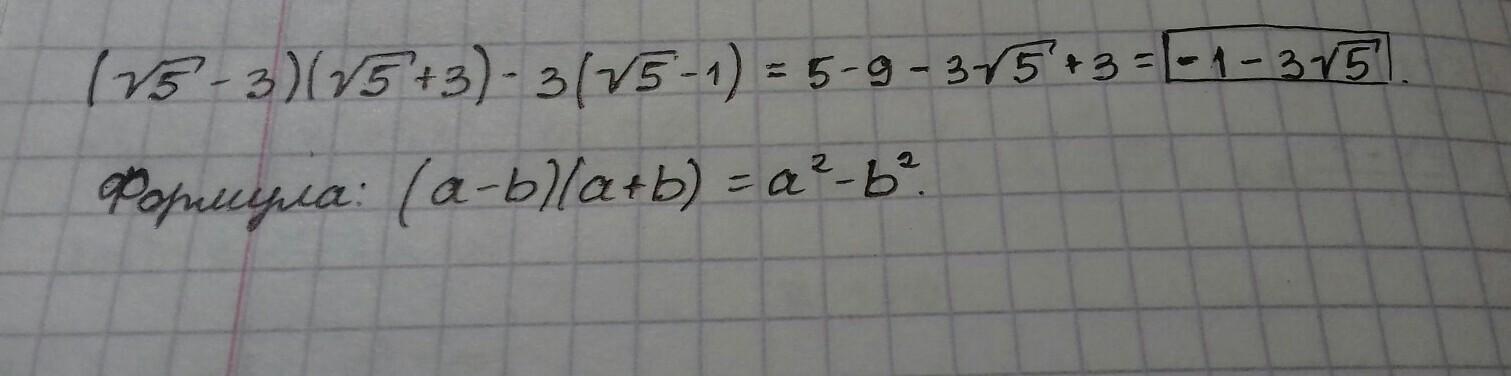 (√5 - 3)(√5 + 3) - 3(√5 - 1) = 5 - 9 - 3√5 + 3 = -1 - 3√5.
Формула: (a - b)(a + b) = a² - b².